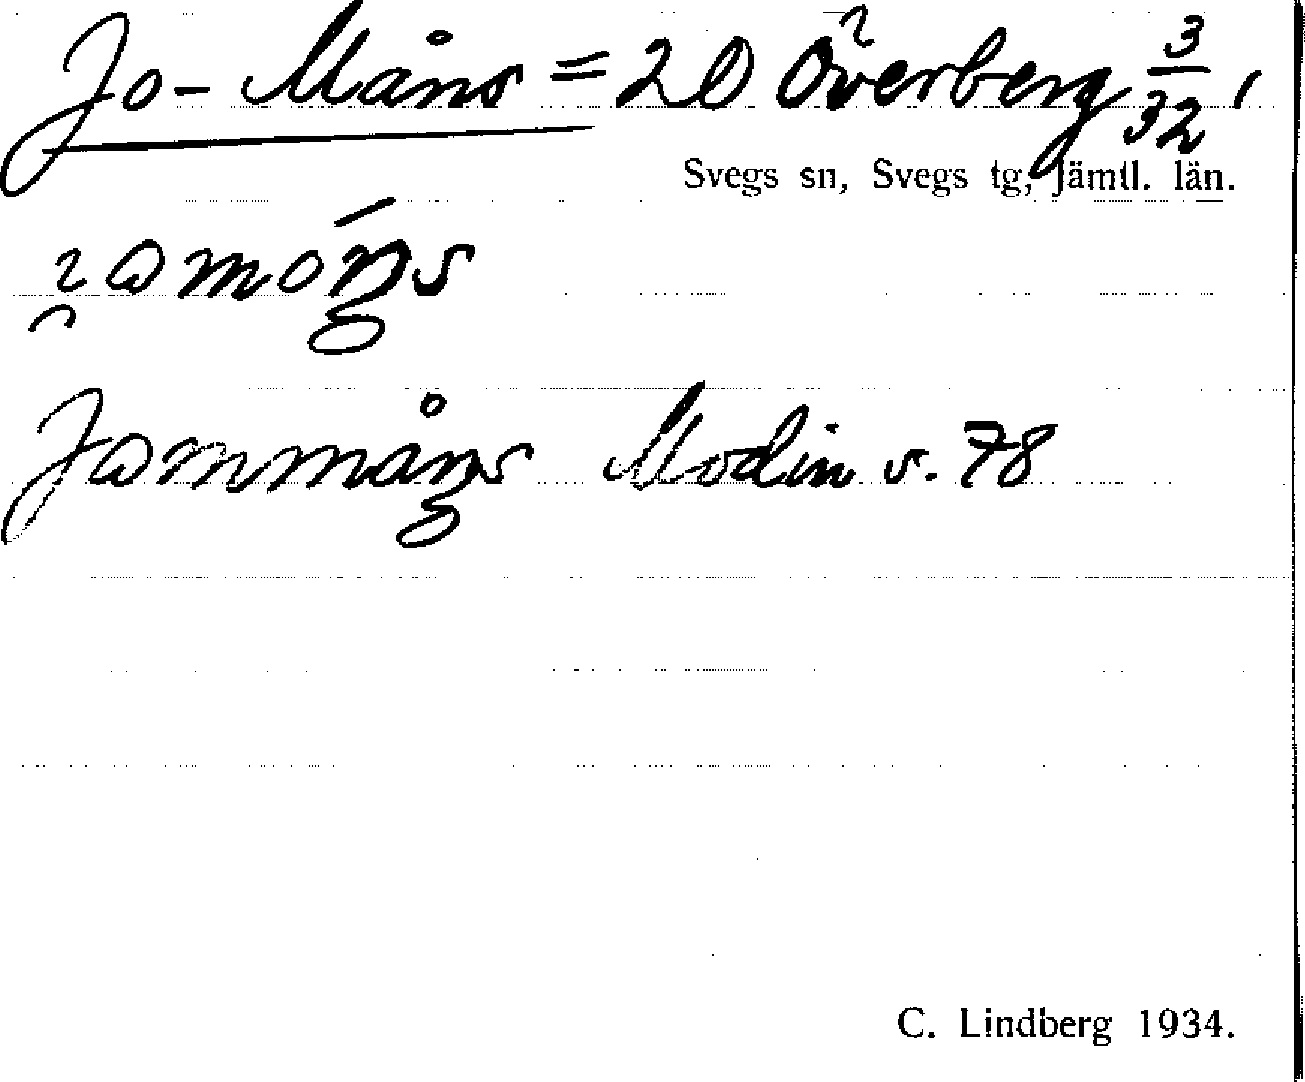 Jo-Måns = 20 Överberg 3/32,
Svegs sn, Svegs tg, Jämtl. län.
Jommåns Modin s. 78
C. Lindberg 1934.